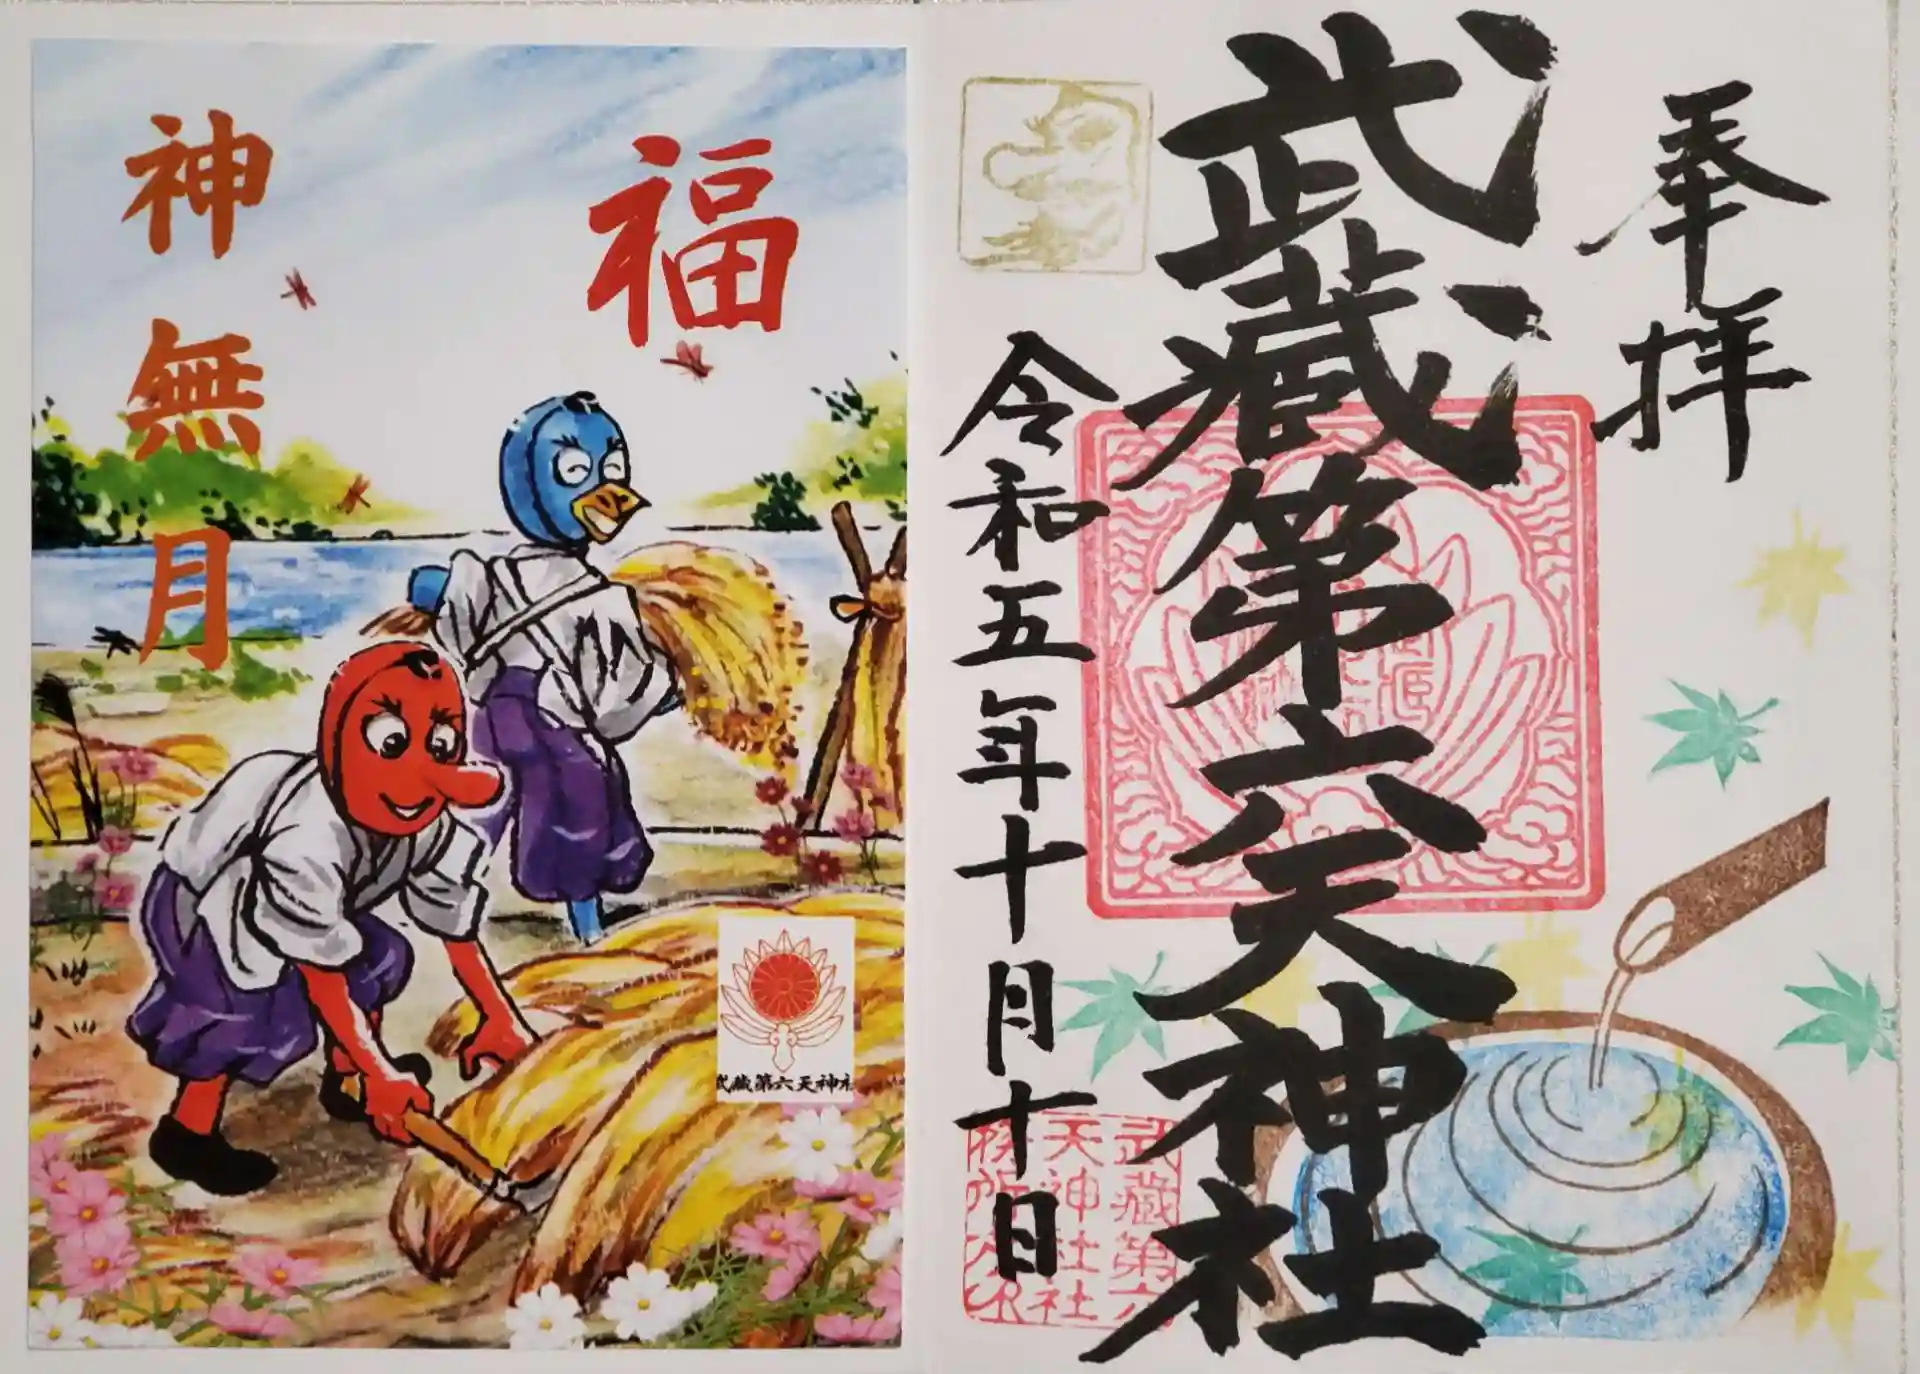 奉拝
武蔵第六天神社
令和五年十月十日
武蔵第六
天神社社
務所
福
神無月
武蔵第六天神社